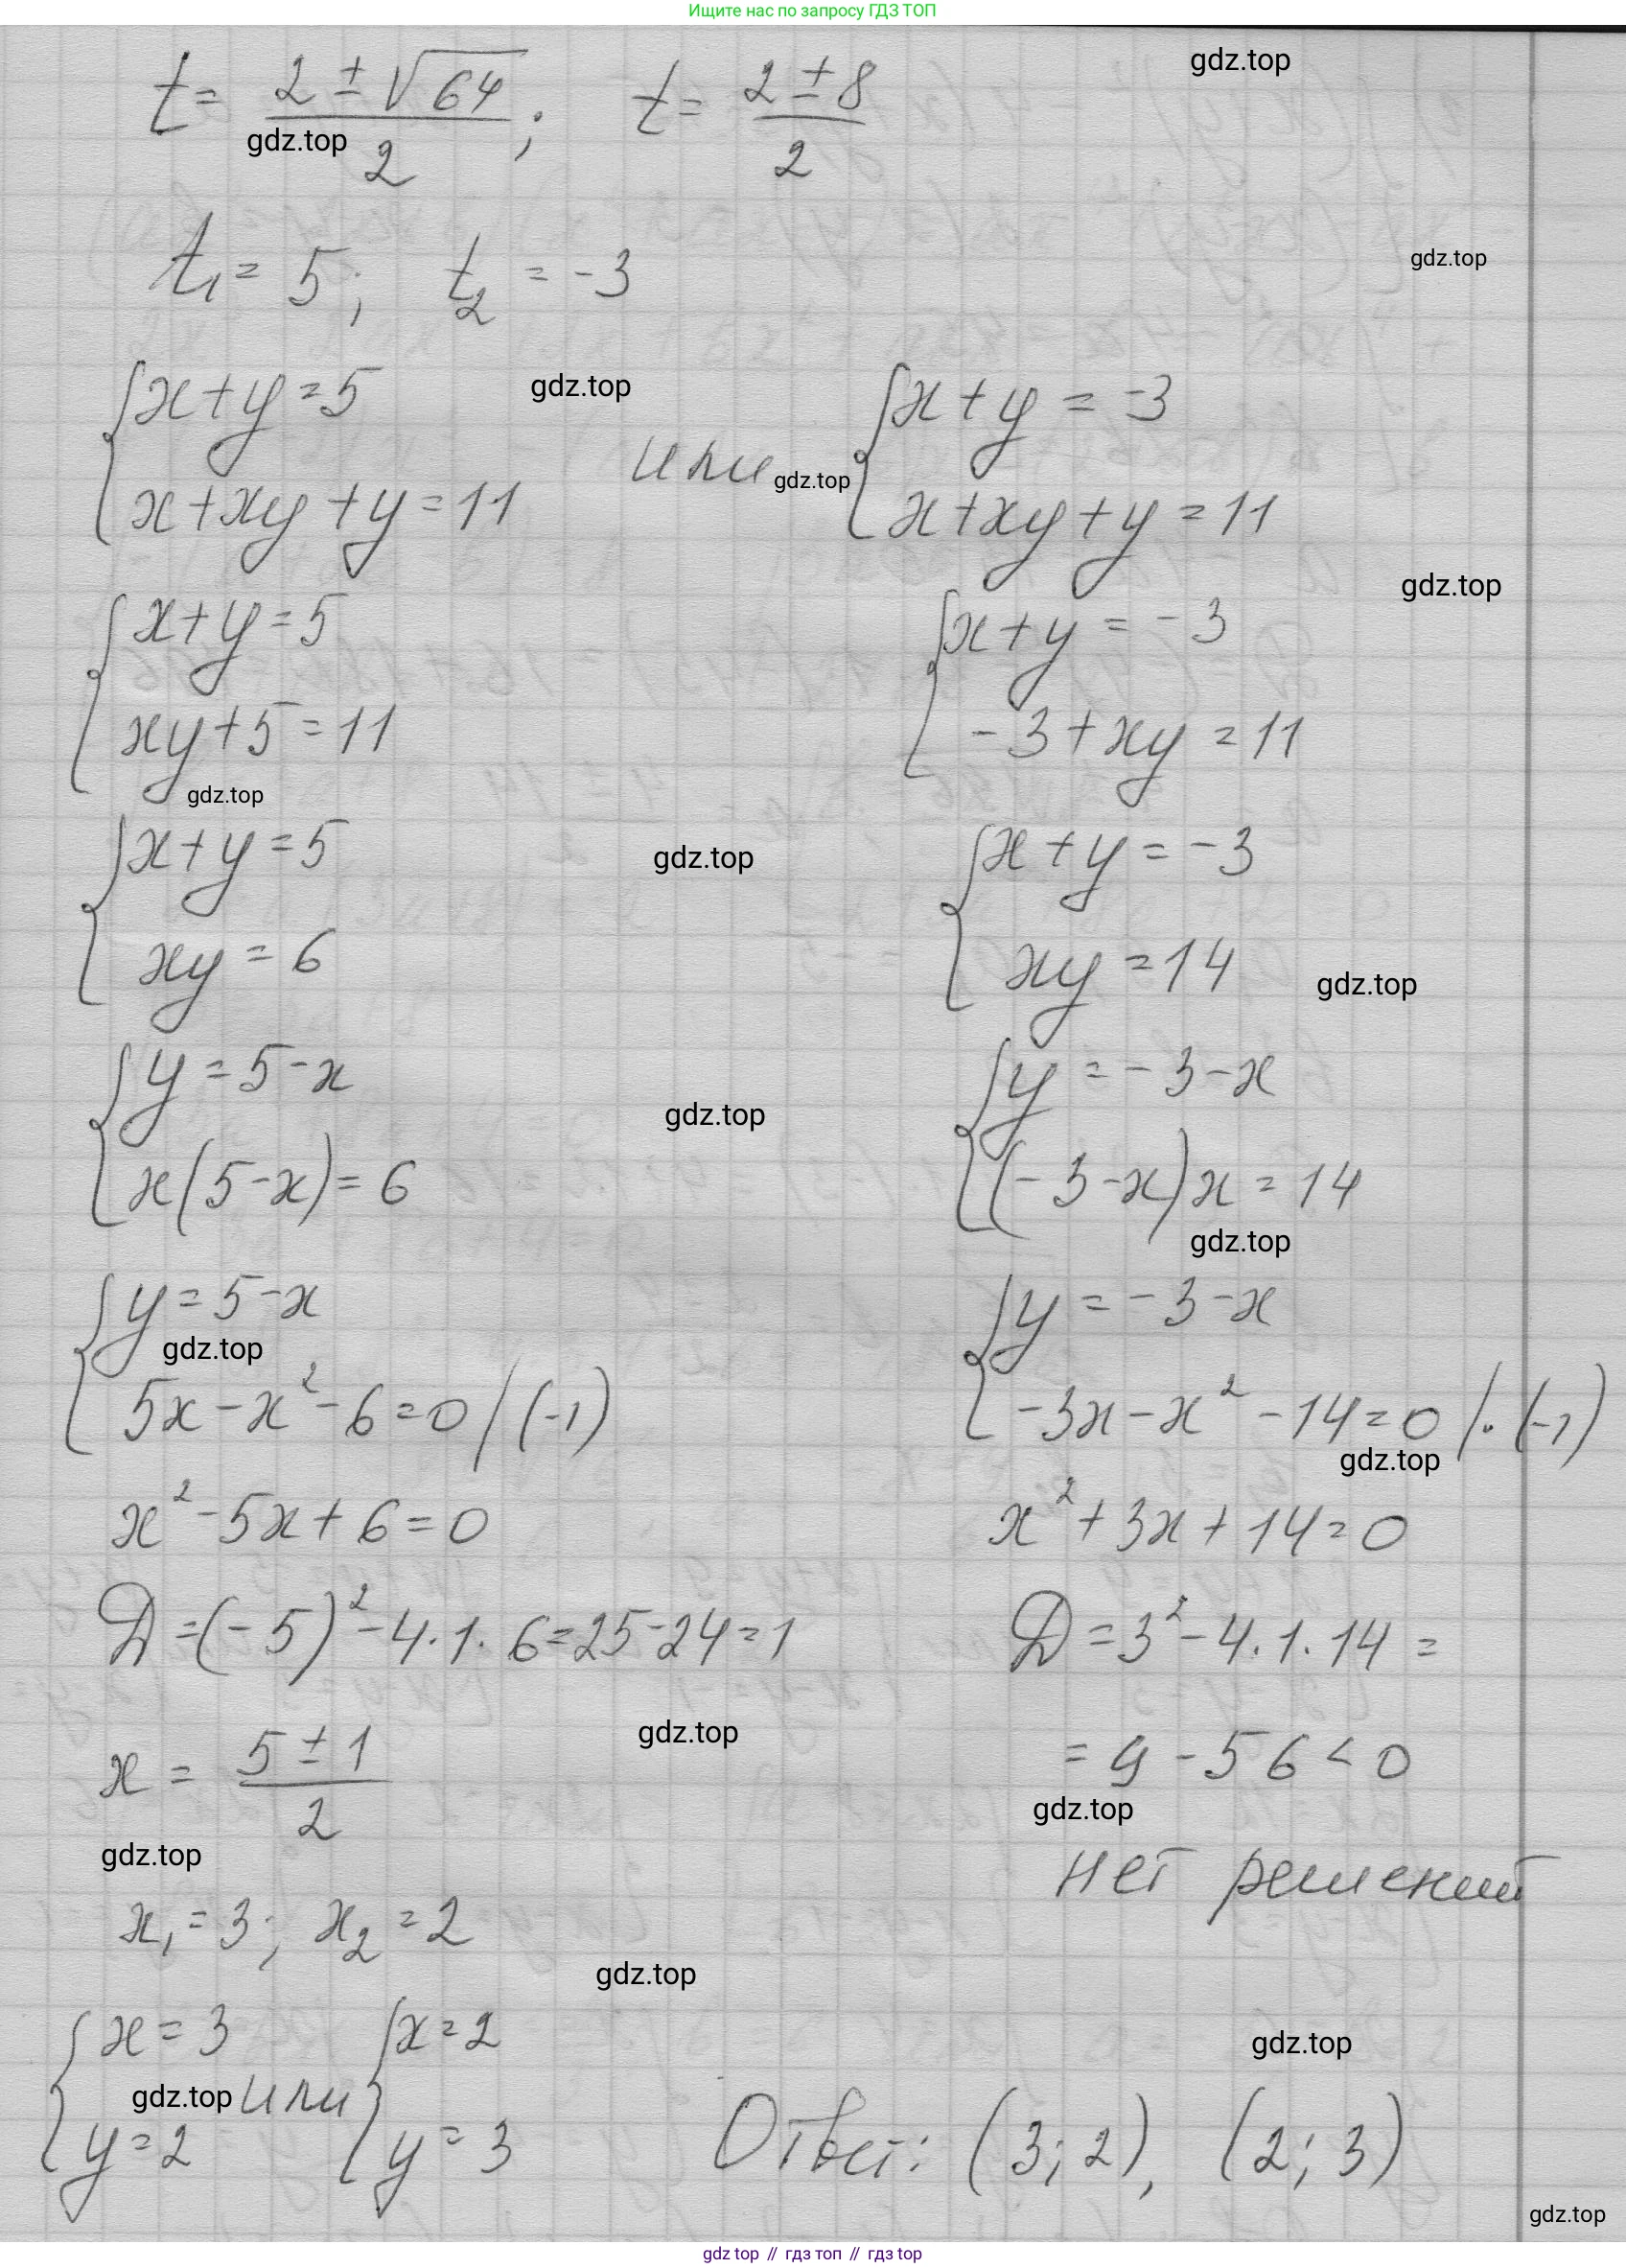 Ищите нас по запросу ГДЗ ТОП
gdz.top
t = (2 ± √64)/2 ; t = (2 ± 8)/2
gdz.top
t₁ = 5; t₂ = -3
gdz.top
{ x + y = 5
gdz.top
{ x + xy + y = 11
или
gdz.top
{ x + y = -3
{ x + xy + y = 11
gdz.top
{ x + y = 5
{ xy + 5 = 11
{ x + y = -3
{ -3 + xy = 11
gdz.top
{ x + y = 5
{ xy = 6
gdz.top
{ x + y = -3
{ xy = 14
gdz.top
{ y = 5 - x
{ x(5 - x) = 6
gdz.top
{ y = -3 - x
{ (-3 - x)x = 14
gdz.top
{ y = 5 - x
gdz.top
{ 5x - x² - 6 = 0 /(-1)
{ y = -3 - x
{ -3x - x² - 14 = 0 /·(-1)
gdz.top
x² - 5x + 6 = 0
x² + 3x + 14 = 0
D = (-5)² - 4·1·6 = 25 - 24 = 1
D = 3² - 4·1·14 =
gdz.top
x = (5 ± 1)/2
= 9 - 56 < 0
gdz.top
gdz.top
нет решений
x₁ = 3; x₂ = 2
gdz.top
{ x = 3
{ y = 2
gdz.top
или
{ x = 2
{ y = 3
gdz.top
Ответ: (3; 2), (2; 3)
gdz.top
gdz top // гдз топ // gdz top